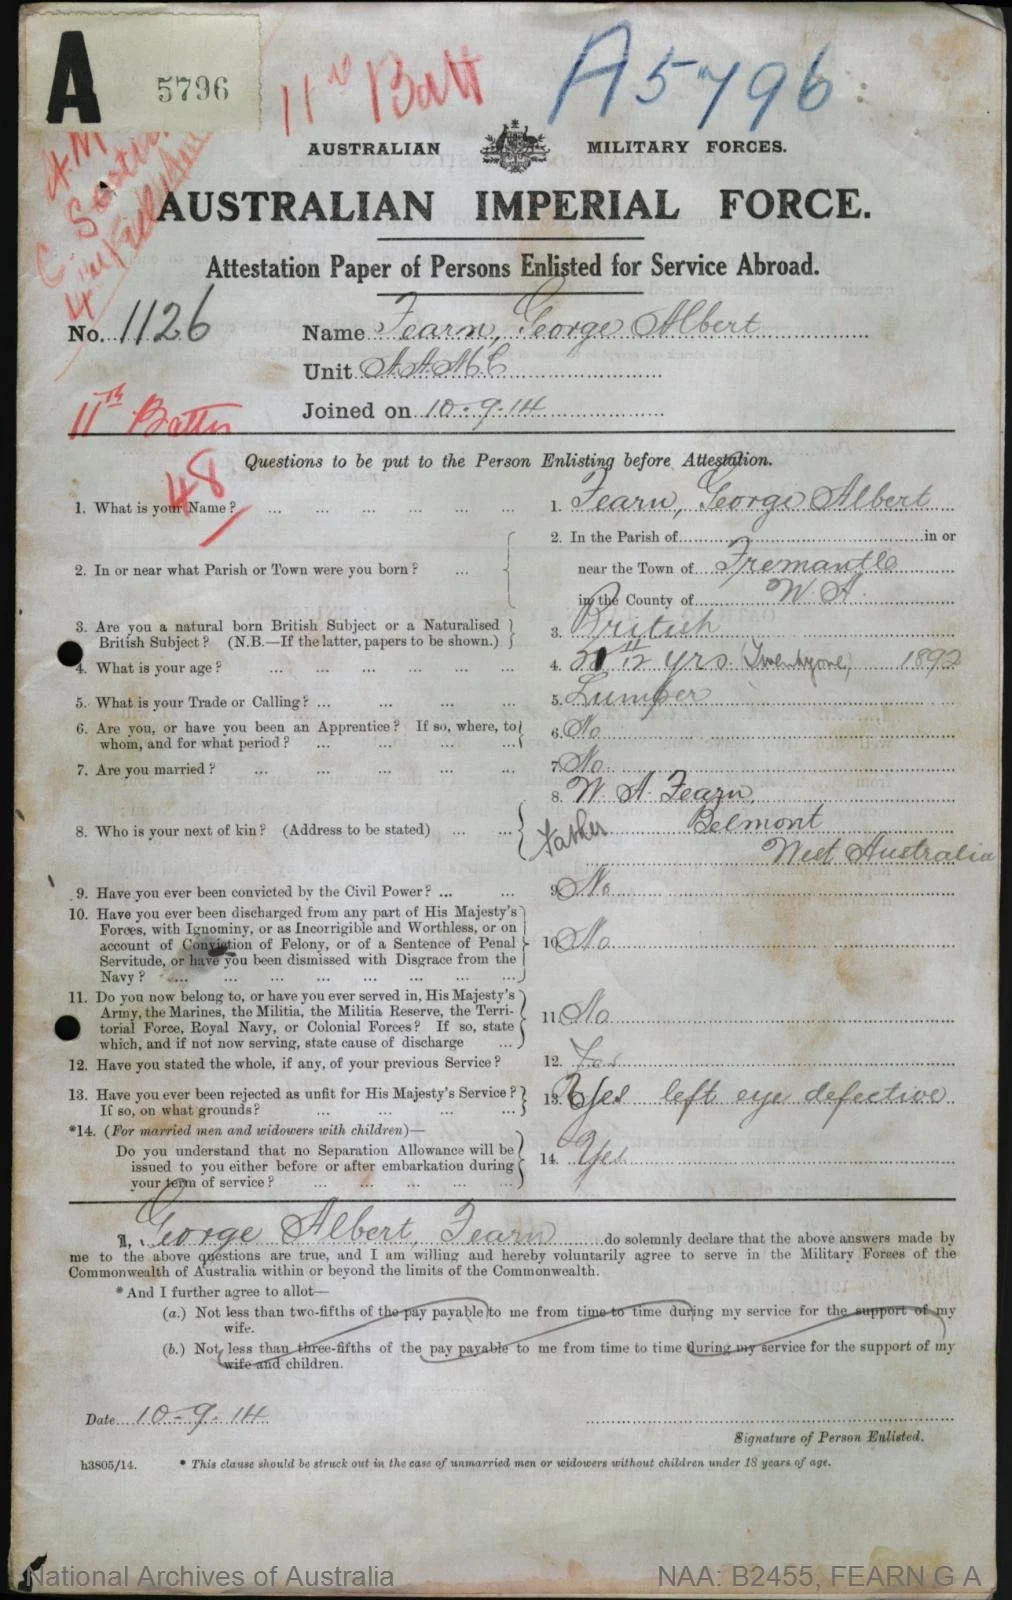 A 5796
11th Batt
A5796
AUSTRALIAN MILITARY FORCES.
AUSTRALIAN IMPERIAL FORCE.
Attestation Paper of Persons Enlisted for Service Abroad.
No. 1126 Name Fearn, George Albert
Unit AAMC
Joined on 10.9.14
11th Battn
48
Questions to be put to the Person Enlisting before Attestation.
1. What is your Name? ... ... ... ... ... 1. Fearn, George Albert
2. In or near what Parish or Town were you born? ... 2. In the Parish of in or
near the Town of Fremantle
in the County of W A.
3. Are you a natural born British Subject or a Naturalised
British Subject? (N.B.—If the latter, papers to be shown.) 3. British
4. What is your age? ... ... ... ... ... 4. 11/12 yrs. (Twentyone) 1892
5. What is your Trade or Calling? ... ... ... ... 5. Lumper
6. Are you, or have you been an Apprentice? If so, where, to
whom, and for what period? ... ... ... ... 6. No
7. Are you married? ... ... ... ... ... 7. No.
8. Who is your next of kin? (Address to be stated) ... ... 8. W. A. Fearn,
Father Belmont
West Australia
9. Have you ever been convicted by the Civil Power? ... ... 9. No
10. Have you ever been discharged from any part of His Majesty's
Forces, with Ignominy, or as Incorrigible and Worthless, or on
account of Conviction of Felony, or of a Sentence of Penal
Servitude, or have you been dismissed with Disgrace from the
Navy? ... ... ... ... ... ... 10. No
11. Do you now belong to, or have you ever served in, His Majesty's
Army, the Marines, the Militia, the Militia Reserve, the Terri-
torial Force, Royal Navy, or Colonial Forces? If so, state
which, and if not now serving, state cause of discharge ... 11. No
12. Have you stated the whole, if any, of your previous Service? 12. Yes
13. Have you ever been rejected as unfit for His Majesty's Service?
If so, on what grounds? ... ... ... ... 13. Yes left eye defective
*14. (For married men and widowers with children)—
Do you understand that no Separation Allowance will be
issued to you either before or after embarkation during
your term of service? ... ... ... ... ... 14. Yes
I, George Albert, Fearn do solemnly declare that the above answers made by
me to the above questions are true, and I am willing and hereby voluntarily agree to serve in the Military Forces of the
Commonwealth of Australia within or beyond the limits of the Commonwealth.
* And I further agree to allot—
(a.) Not less than two-fifths of the pay payable to me from time to time during my service for the support of my
wife.
(b.) Not less than three-fifths of the pay payable to me from time to time during my service for the support of my
wife and children.
Date 10-9.14
Signature of Person Enlisted.
h3805/14. * This clause should be struck out in the case of unmarried men or widowers without children under 18 years of age.
National Archives of Australia NAA: B2455, FEARN G A